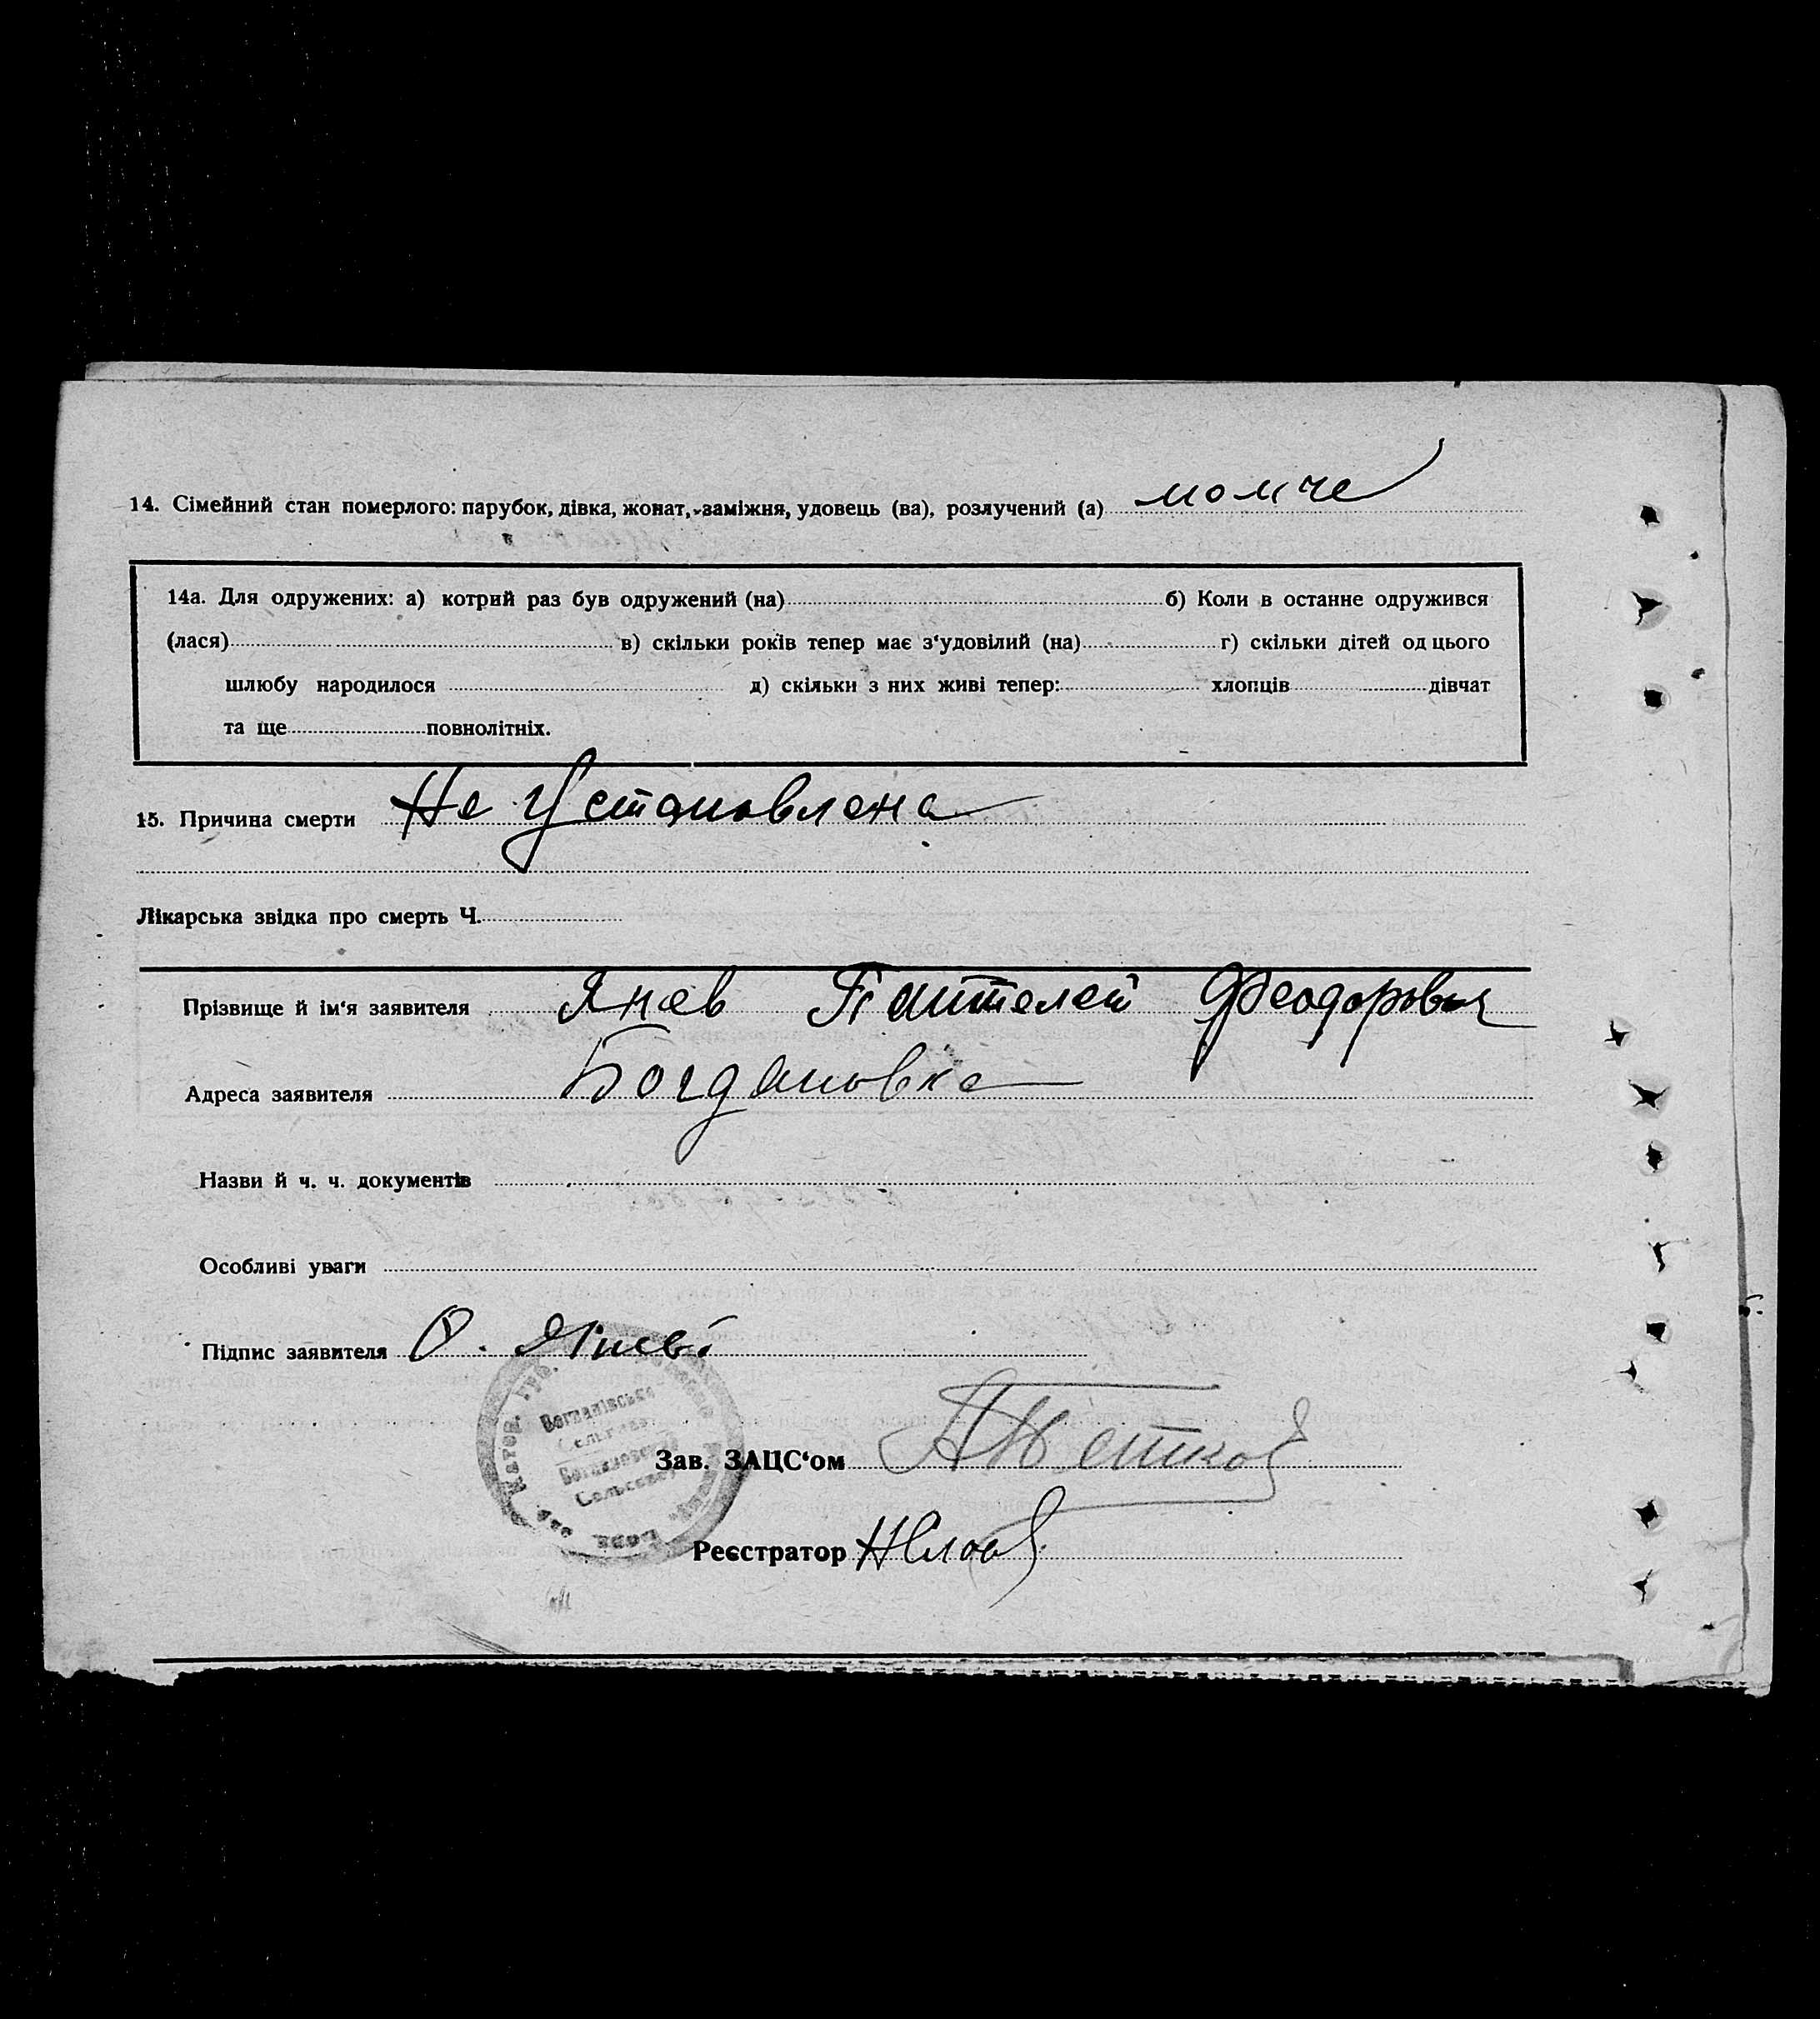 14. Сімейний стан померлого: парубок, дівка, жонат, заміжня, удовець (ва), розлучений (а) момче
14а. Для одружених: а) котрий раз був одружений (на) б) Коли в останнє одружився
(лася) в) скільки років тепер має з‘удовілий (на) г) скільки дітей од цього
шлюбу народилося д) скільки з них живі тепер: хлопців дівчат
та ще повнолітніх.
15. Причина смерти Не Установлена
Лікарська звідка про смерть Ч.
Прізвище й ім‘я заявителя Янев Пантелей Феодорович
Адреса заявителя Богдановка
Назви й ч. ч. документів
Особливі уваги
Підпис заявителя
Богданівська
Сельсовет
Зав. ЗАЦС‘ом
Реєстратор